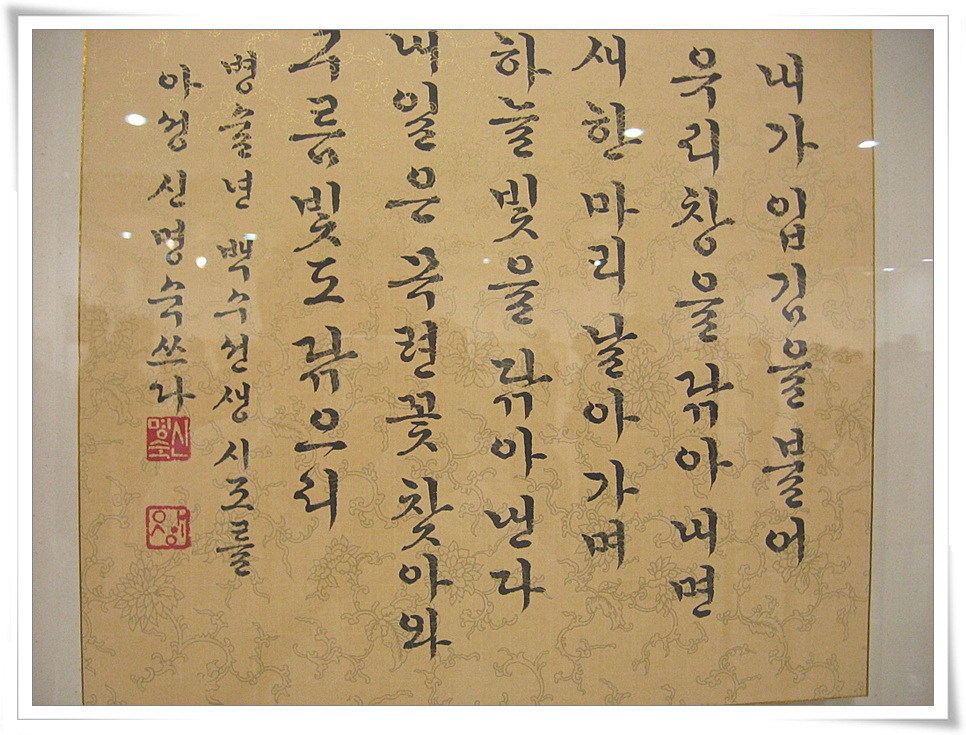 내가 입김을 불어
유리창을 닦아 내면
새 한 마리 날아가며
하늘빛을 닦아 낸다
내일은 목련꽃 찾아와
구름빛도 닦으리
병술년 백수선생 시조를
아성 신명숙 쓰다
신명숙